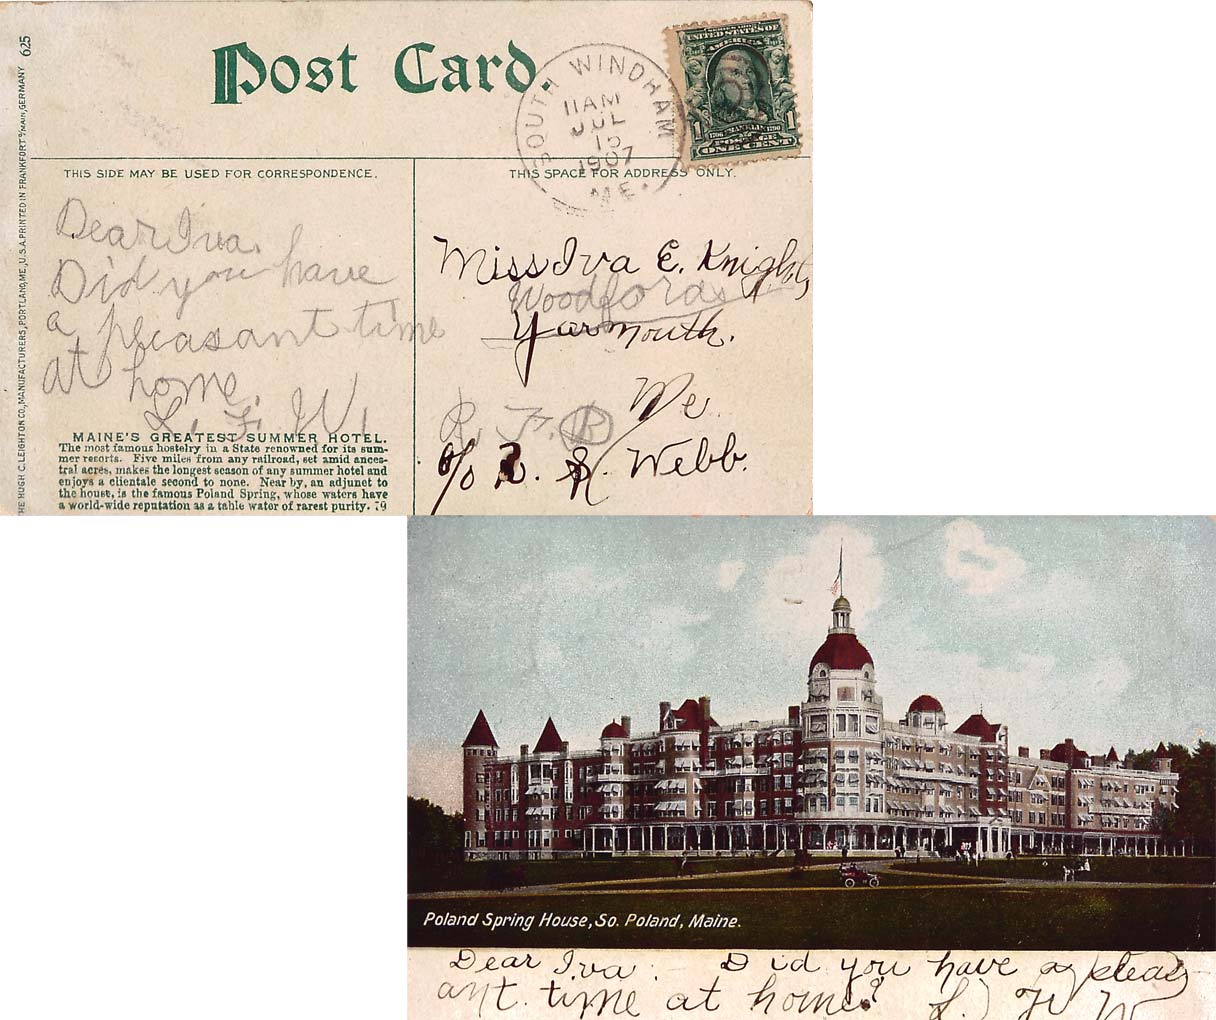 Post Card.
SOUTH WINDHAM
11 AM
JUL
15
1907
ME.
UNITED STATES OF
AMERICA
1706 FRANKLIN 1790
1 POSTAGE 1
ONE CENT
THIS SIDE MAY BE USED FOR CORRESPONDENCE.
THIS SPACE FOR ADDRESS ONLY.
THE HUGH C. LEIGHTON CO., MANUFACTURERS, PORTLAND, ME., U.S.A. PRINTED IN FRANKFORT o/MAIN, GERMANY 625
Dear Iva.
Did you have
a pleasant time
at home.
L. F. W.
MAINE'S GREATEST SUMMER HOTEL.
The most famous hostelry in a State renowned for its sum-
mer resorts. Five miles from any railroad, set amid ances-
tral acres, makes the longest season of any summer hotel and
enjoys a clientale second to none. Near by, an adjunct to
the house, is the famous Poland Spring, whose waters have
a world-wide reputation as a table water of rarest purity. 79
Miss Iva E. Knight,
Woodfords
Yarmouth.
Me.
R. F. D
c/o S. Webb.
Poland Spring House, So. Poland, Maine.
Dear Iva:- Did you have a pleas-
ant time at home? L. F. W